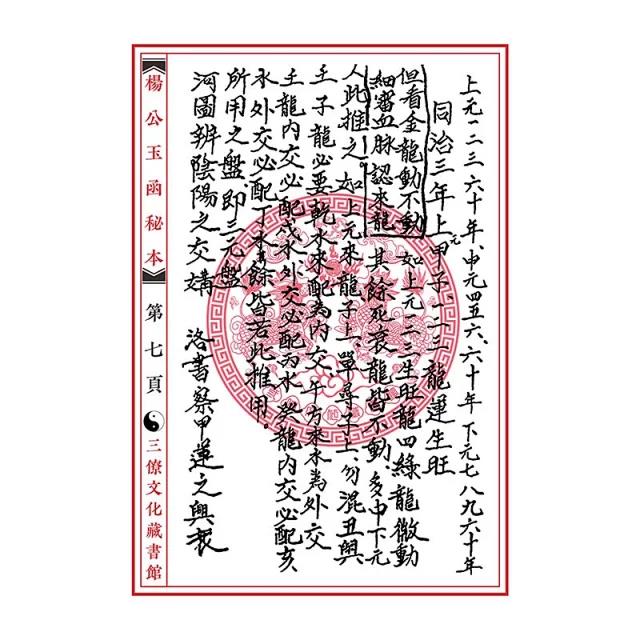 上元一二三六十年、中元四五六、六十年下元七八九六十年
同治三年上元甲子、一二三龍運生旺
但看金龍動不動 如上元一二三生旺龍四綠龍微動
細審血脉認來龍 其餘死衰龍皆不動、多中下元
人此推之 如上元來龍子上、單尋子上、勿混丑與
壬子龍必要乾水來配為內交午方來水為外交
壬龍內交必配戌水外交必配丙水癸龍內交必配亥
水外交必配丁水餘皆若此推用。
所用之盤即三元盤
河圖辨陰陽之交媾 洛書察甲運之興衰
楊公玉函秘本 第七頁 三僚文化藏書館